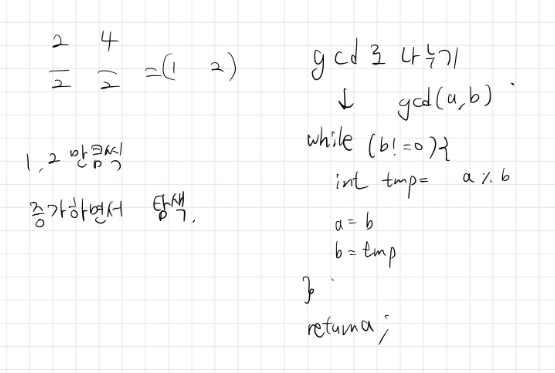 2 4
2 2 =(1 2)
1, 2 만큼씩
증가하면서 탐색.
gcd로 나누기
↓ gcd(a,b)
while (b!=0){
int tmp= a % b
a=b
b=tmp
}
return a;